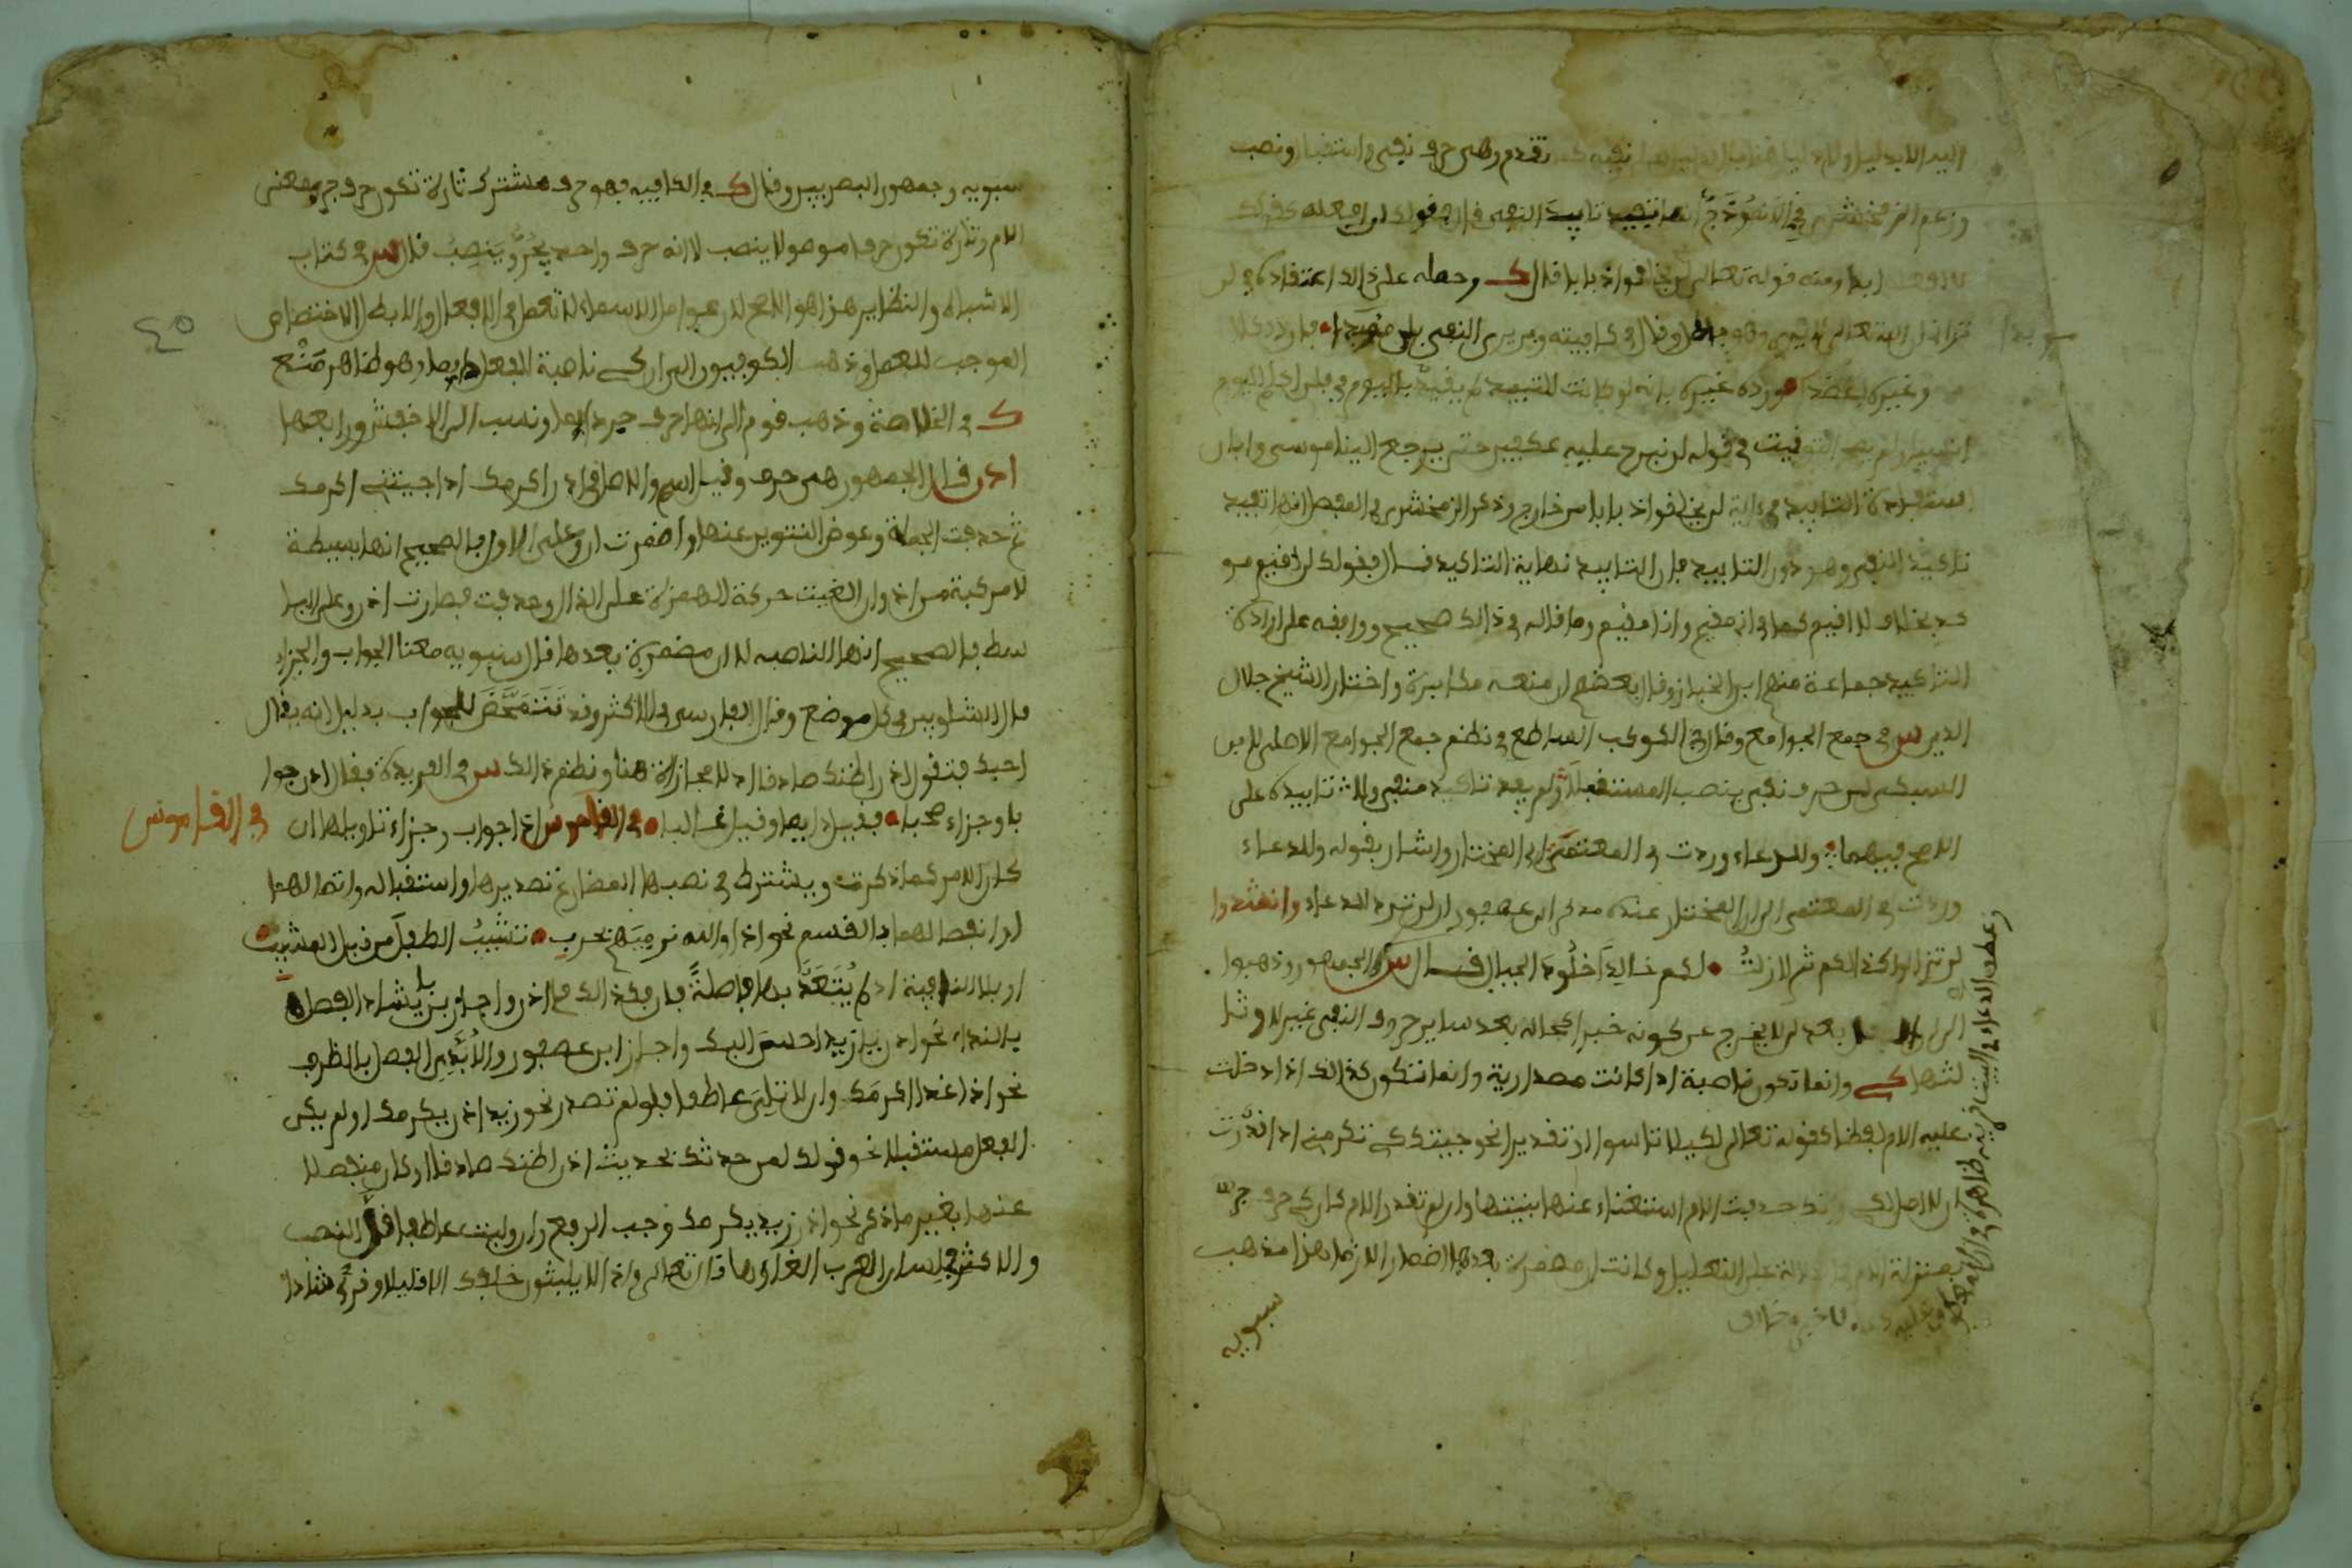 تقدم وهي حرف نفي واستقبال ونصب
وزعم الزمخشري في الانموذج انها تفيد تابيد النفي قال فقولك لن افعله كقولك
لا افعله ابدا ومنه قوله تعالى لن يخلقوا ذبابا قال ك وحمله على ذالك اعتقاده في لن
تراني ان الله تعالى لا يرى وهو باطل وقال في كافيته ومن يرى النفي بلن مؤبدا • فاردد كلا
وغيره بغيره بانه لو كانت للتابيد لم يقيد باليوم في فلن اكلم اليوم
انسيا ولم يصح التوقيت في قوله لن نبرح عليه عكفين حتى يرجع الينا موسى وابان
استفادة التابيد في ءاية لن يخلقوا ذبابا من خارج وذكر الزمخشري في المفصل انها تفيد
تاكيد النفي وهو دون التابيد فان التابيد نهاية التاكيد قال فقولك لن اقيم مو
كد بخلاف لا اقيم كما في اني مقيم وانا مقيم وما قاله في ذالك صحيح ووافقه على افادة
التاكيد جماعة منهم ابن الخباز وقال بعضهم ان منعه مكابرة واختار الشيخ جلال
الدين س في جمع الجوامع وقال في الكوكب الساطع في نظم جمع الجوامع الاصلي لابن
السبكي لن حرف نفي ينصب المستقبلا ولم يفد تاكيد منفي ولا تابيده على
الاصح فيهما • وللدعاء وردت في المعتمى اي المختار واشار بقوله وللدعاء
وردت في المعتمى الى ان المختار عنده مذهب ابن عصفور ان لن ترد للدعاء وانشدوا
لن تزالوا كذالكم ثم لا زلت • لكم خالدا خلود الجبال قال س والجمهور وذهبوا
الى ان الفعل بعد لن لا يخرج عن كونه خبرا كحاله بعد ساير حروف النفي غير لا وثا
لثها كي وانما تكون ناصبة اذا كانت مصدرية وانما تكون كذالك اذا دخلت
عليه اللام لفظا كقوله تعالى لكيلا تاسوا او تقديرا نحو جيتك كي تكرمني اذا قدرت
ان الاصل لكي وانك حذفت اللام استغناء عنها بنيتها وان لم تقدر اللام كان كي حرف جر
بمنزلة اللام في الدلالة على التعليل وكانت ان مضمرة بعدها اضمارا لازما هذا مذهب
سبويه
وعطف الدعاء في البيت قرينة ظاهرة في ان المعطوف عليه دعاء لا خبر خلاف
سبويه وجمهور البصريين وقال ك في الكافيه فهو حرف مشترك تارة تكون حرف جر بمعنى
اللام وتارة تكون حرفا موصولا ينصب لا انه حرف واحد يجر وينصب قال س في كتاب
الاشباه والنظاير هذا هو الاصح لان عوامل الاسماء لا تعمل في الافعال والا بطل الاختصاص
الموجب للعمل وذهب الكوفيون الى ان كي ناصبة للفعل دايما وهو ظاهر صنع
ك في الخلاصة وذهب قوم الى انها حرف جر دايما ونسب الى الاخفش ورابعها
اذن قال الجمهور هي حرف وقيل اسم والاصل في اذن اكرمك اذا جيتني اكرمك
ثم حذفت الجملة وعوض التنوين عنها واضمرت ان وعلى الاول فالصحيح انها بسيطة
لا مركبة من اذ وان الغيت حركة الهمزة على الذال وحذفت فصارت اذن وعلى البسا
سط فالصحيح انها الناصبه لا ان مضمرة بعدها قال سبويه معنا الجواب والجزاء
قال الشلوبين في كل موضع وقال الفارسي في الاكثر وقد تتمحض للجواب بدليل انه يقال
احبك فتقول اذن اظنك صادقا اذ لا مجازاة هنا ونظم ذالك س في الفريدة فقال اذن جوا
با وجزاء صحبا • فقيل دايما وقيل غالبا • في القاموس اذا جواب وجزاء تاويلها ان
كان الامر كما ذكرت ويشترط في نصبها المضارع تصديرها واستقباله واتصالهما
او انفصالهما بالقسم نحو اذا والله نرميهم بحرب • تشيب الطفل من قبل المشيب
او بلا النافية اذ لم يتعد بها فاصلة فان فقد ذالك فما اذن واجاز بن بابشاذ الفصل
بالنداء نحو اذن يا زيد احسن اليك واجاز ابن عصفور والابذي الفصل بالظرف
نحو اذا غدا اكرمك وان لا تلي عاطفا فلو لم تصدر نحو زيد اذن يكرمك او لم يكن
الفعل مستقبلا نحو قولك لمن حدثك بحديث اذن اظنك صادقا او كان منفصلا
عنها بغير ما ذكر نحو اذن زيد يكرمك وجب الرفع وان وليت عاطفا قل النصب
والاكثر في لسان العرب الغاؤها قال تعالى واذا لا يلبثون خلافك الا قليلا وقرئ شاذا
في القاموس
٤٥